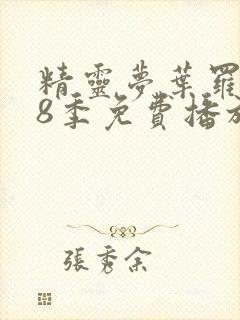 精靈夢葉羅
8季免費播放
張秀余